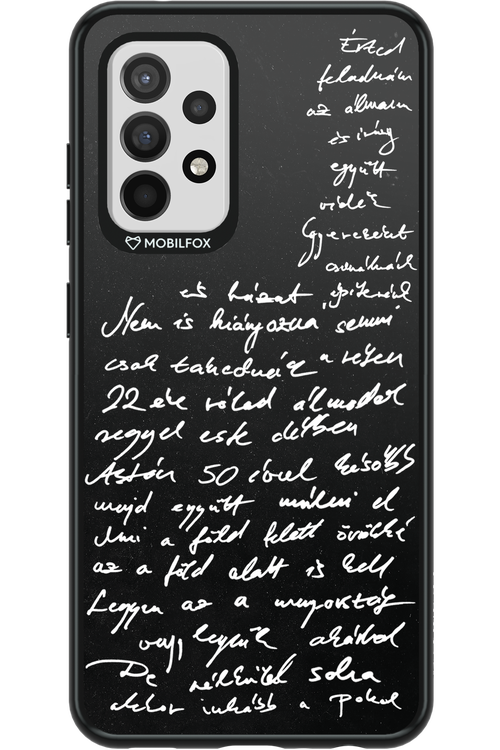 MOBILFOX
Érted
feladnám
az álmam
és így
együtt
vidék
Gyerekeket
csinálnánk
és házat építenénk
Nem is hiányozna semmi
csak takednék a részem
22 éve rólad álmodok
reggel este délben
Aztán 50 évvel később
majd együtt múlni el
Ami a föld felett örökké
az a föld alatt is kell
Legyen az a mennyország
vagy legyünk akárhol
De nélküled soha
akkor inkább a pokol